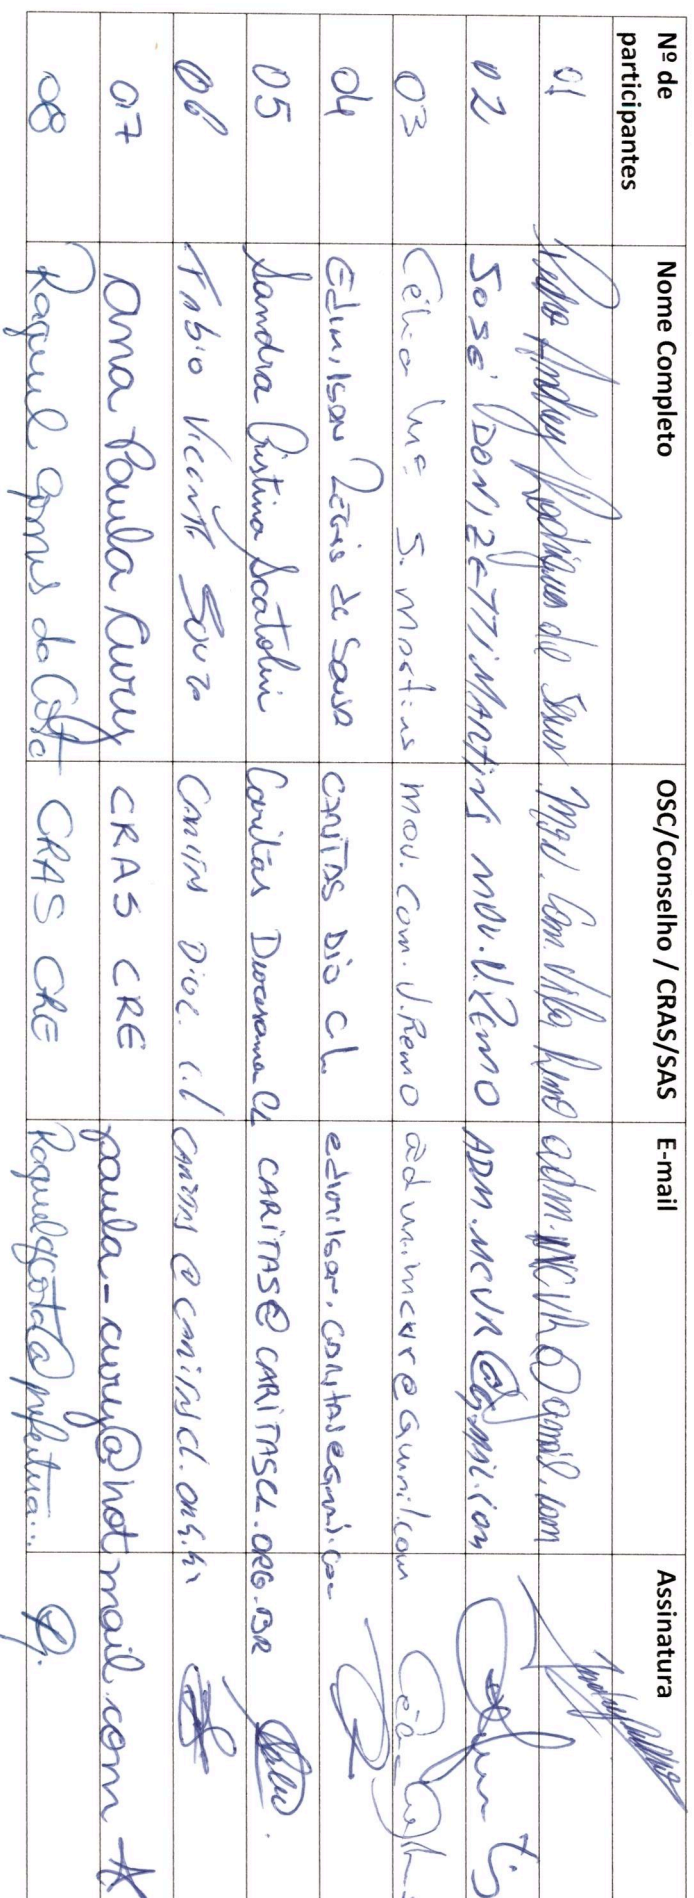 Nº de participantes Nome Completo OSC/Conselho / CRAS/SAS E-mail Assinatura
01 Pedro Andrey Rodrigues de Mov. Com. Vila Remo adm.MCVR@gmail.com
02 José DONIZETTI MARTINS MOV. V. REMO ADM.MCVR@gmail.com
03 Célia S. Martins Mov. Com. V. Remo
04 Edimilson de Sousa CARITAS DIO CL
05 Sandra Cristina Scatolini Caritas Diocesana CL CARITAS@CARITASCL.ORG.BR
06 Fabio Vicente Souza CARITAS Dioc. C.L CARITAS@CARITASCL.ORG.br
07 Ana Paula Cury CRAS CRE paula-cury@hotmail.com
08 Raquel Gomes da Costa CRAS CRE